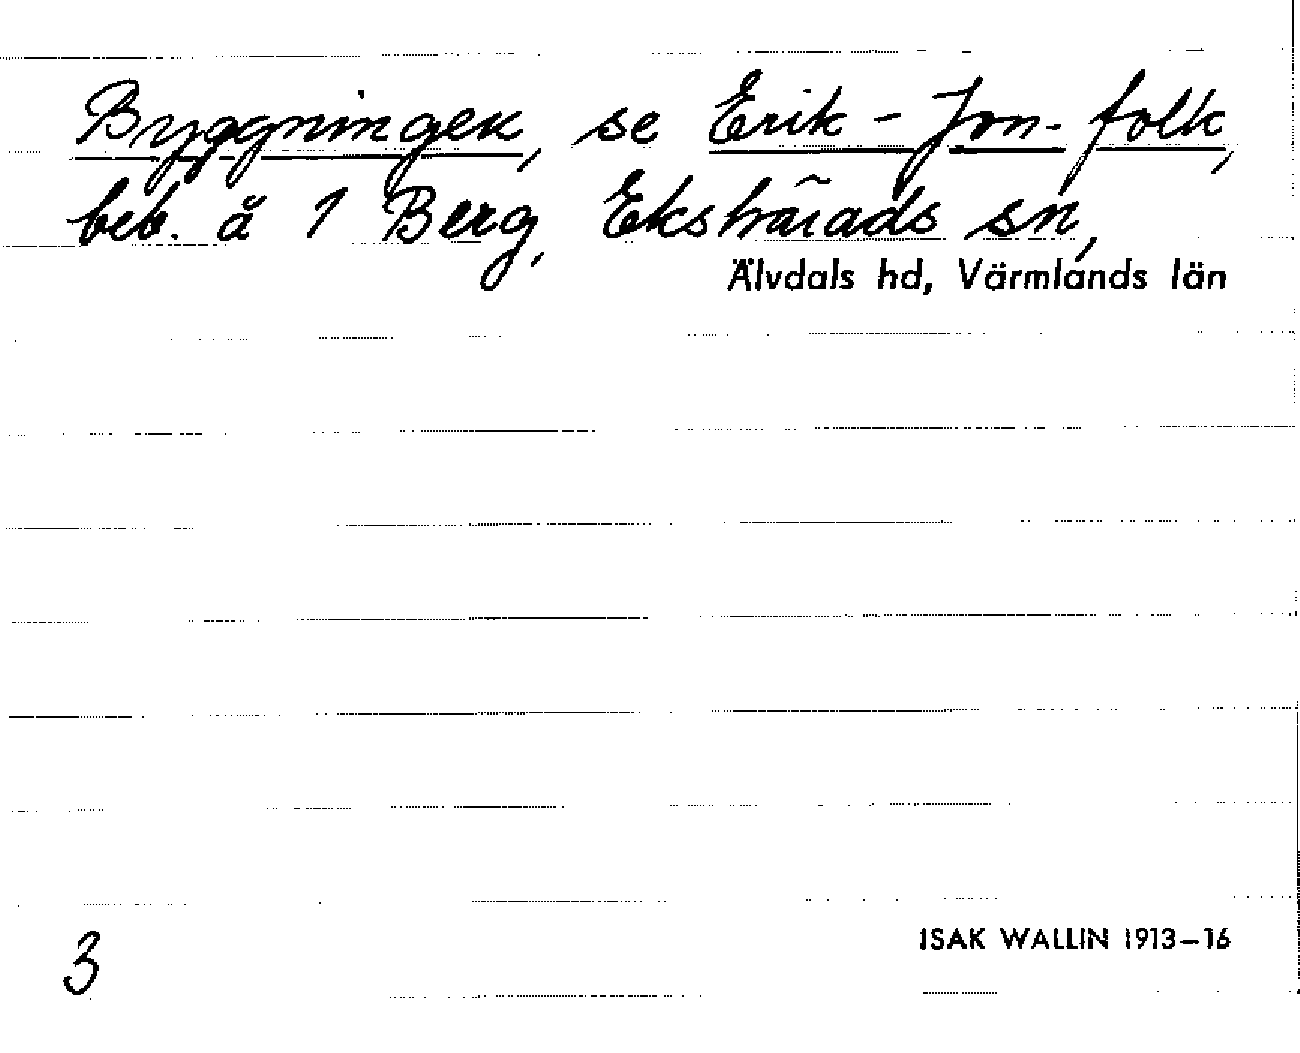 Byggningen, se Erik-Jon-folk,
beb. å 1 Berg, Ekshärads sn,
Älvdals hd, Värmlands län
3
ISAK WALLIN 1913-16